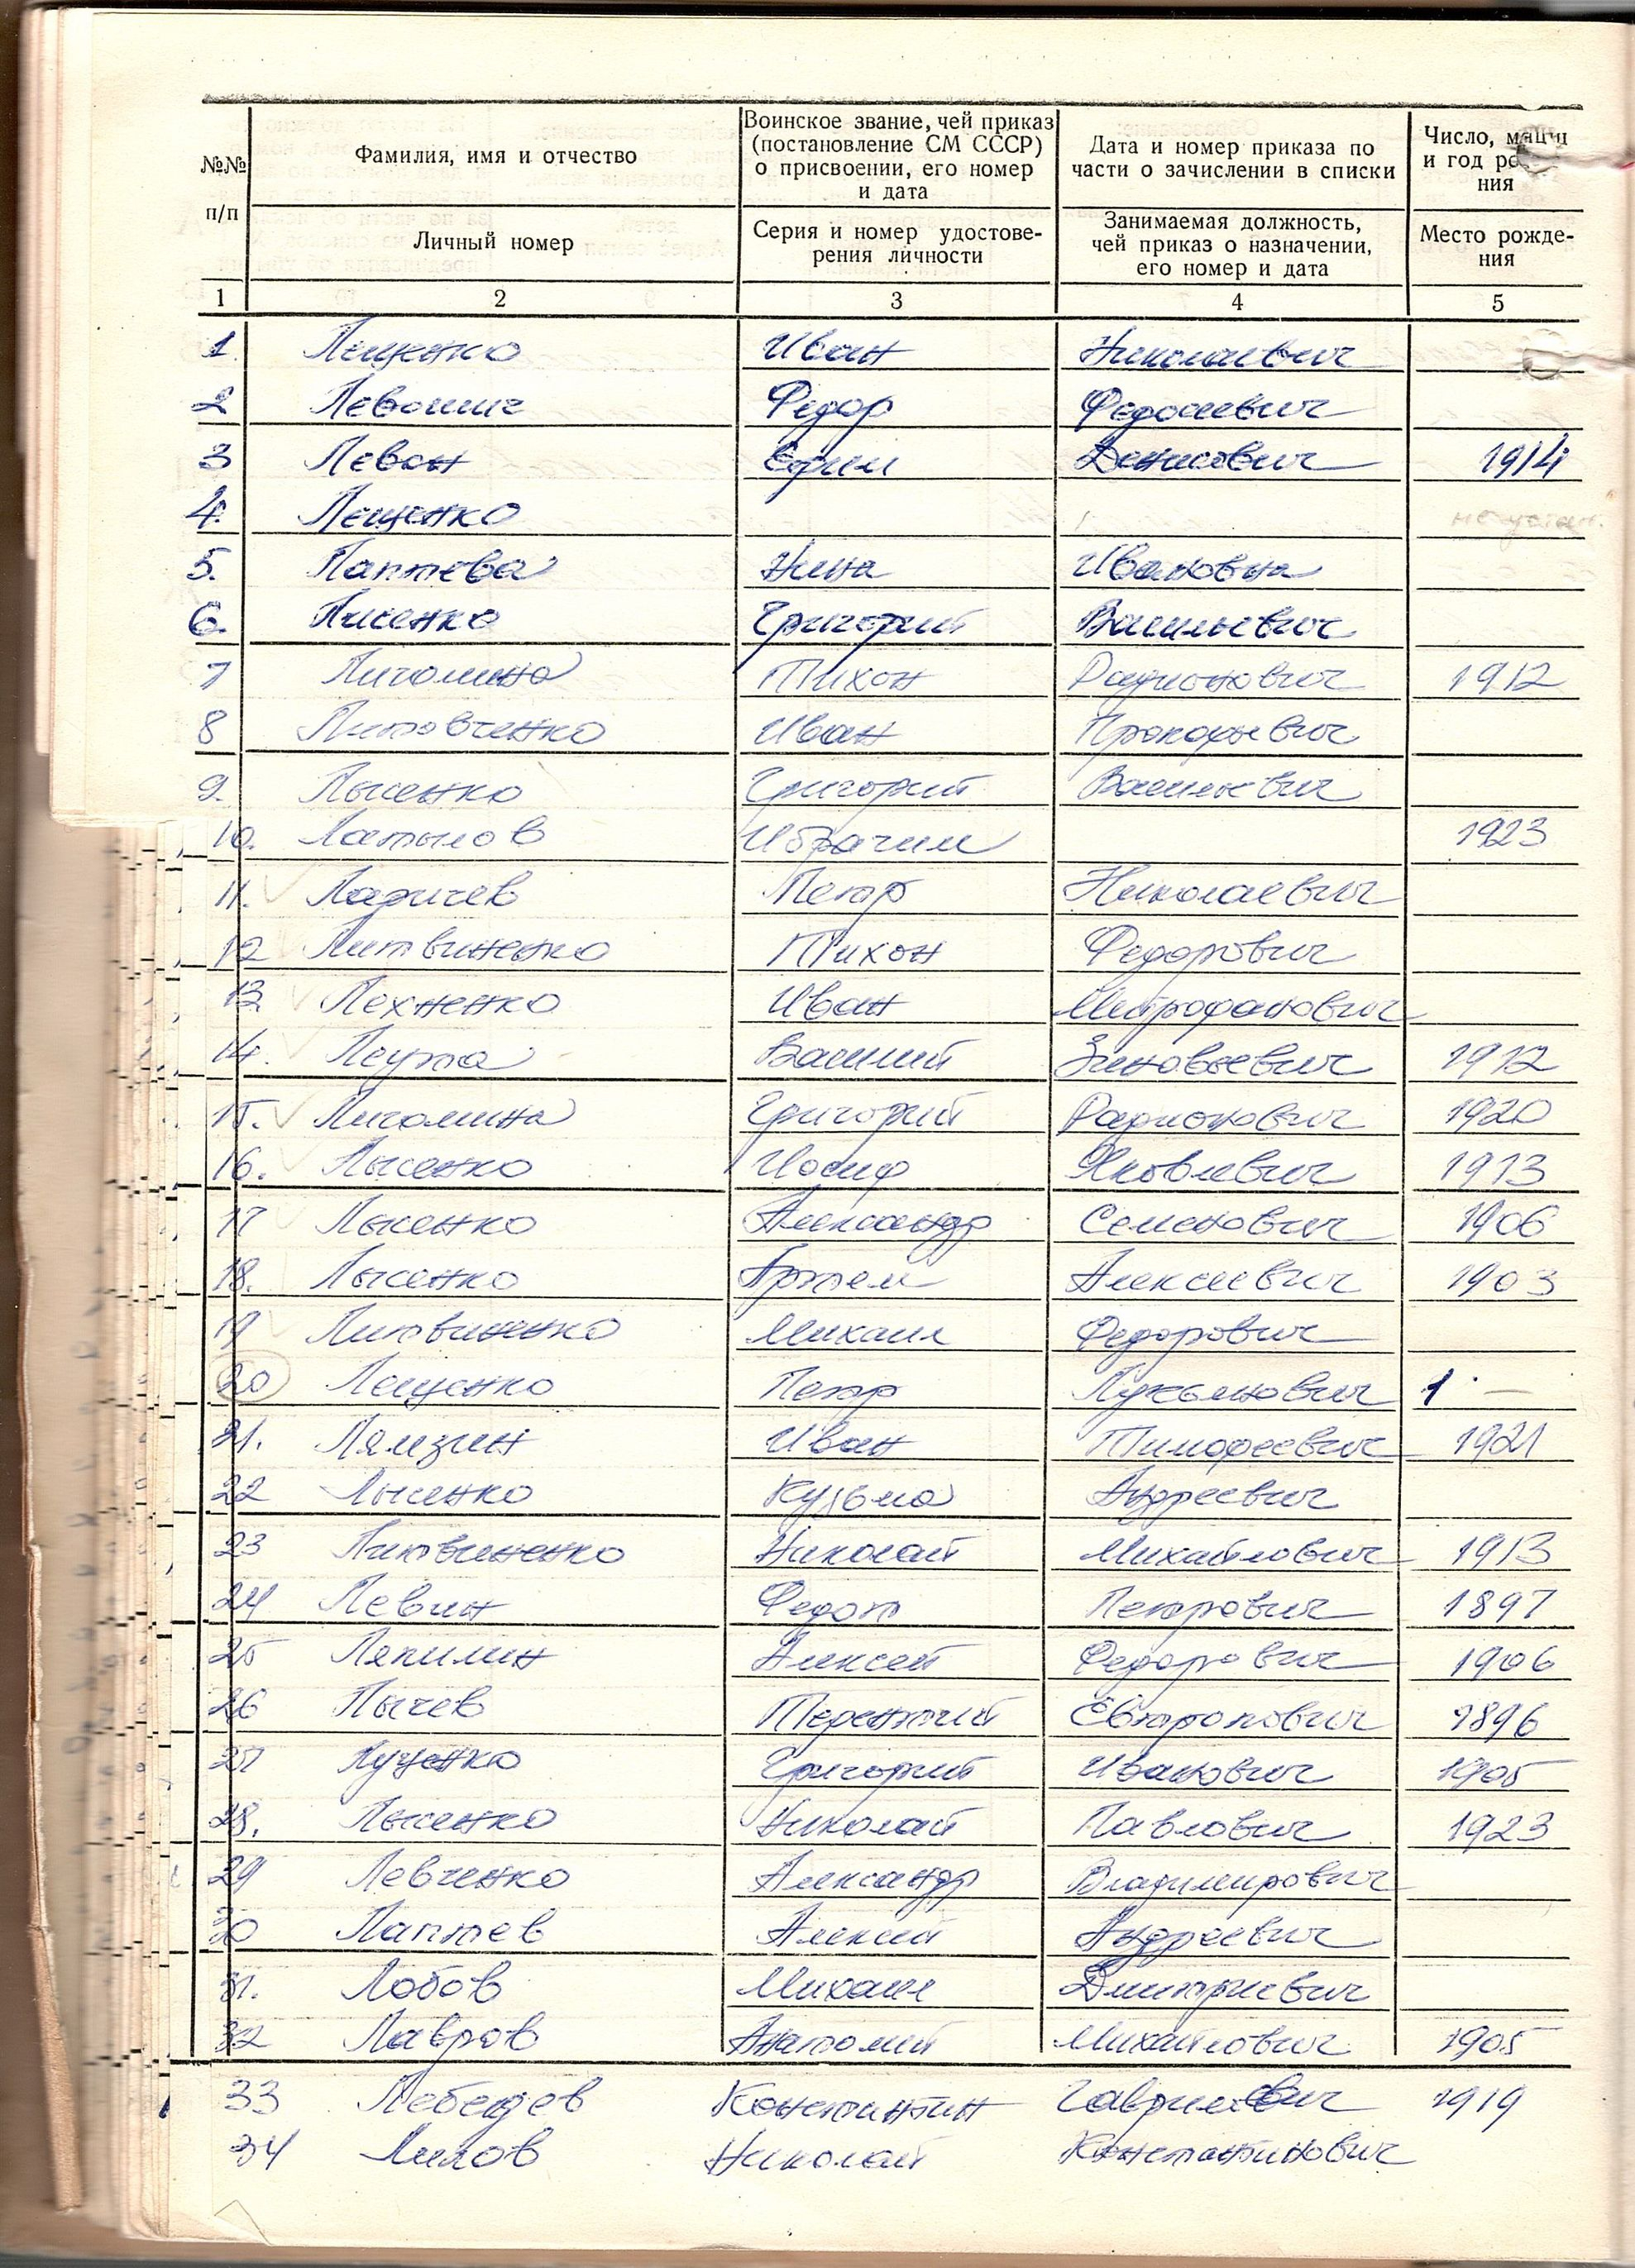 №№ п/п
Фамилия, имя и отчество
Личный номер
Воинское звание, чей приказ (постановление СМ СССР) о присвоении, его номер и дата
Серия и номер удостоверения личности
Дата и номер приказа по части о зачислении в списки
Занимаемая должность, чей приказ о назначении, его номер и дата
Число, и год
Место рождения
1 2 3 4 5
1. Лещенко Иван Николаевич
2 Федор Федосиевич
3 Леван Ефим Денисович 1914
4. Лещенко не устан.
5. Лаптева Нина Ивановна
6. Лисенко Григорий Васильевич
7 Личолина Тихон Радионович 1912
8 Литовченко Иван Прокофьевич
9. Лысенко Григорий Васильевич
10. Латыпов Ибрагим 1923
11. Ларичев Петр Николаевич
12 Литвиненко Тихон Федорович
13. Лехненко Иван Митрофанович
14. Леута Василий Зиновьевич 1912
15. Личолина Григорий Радионович 1920
16. Лысенко Иосиф Яковлевич 1913
17 Лысенко Александр Семенович 1906
18. Лысенко Артем Алексеевич 1903
19 Литвиненко Михаил Федорович
20 Лещенко Петр Лукьянович 1 —
21. Лямзин Иван Тимофеевич 1921
22 Лысенко Кузьма Андреевич
23 Литвиненко Николай Михайлович 1913
24 Левин Федот Петрович 1897
25 Ляпилин Алексей Федорович 1906
26 Лычев Терентий Евтропович 1896
27 Луценко Григорий Иванович 1905
28. Лысенко Николай Павлович 1923
29 Левченко Александр Владимирович
30 Лаптев Алексей Андреевич
31. Лобов Михаил Дмитриевич
32 Лавров Анатолий Михайлович 1905
33 Лебедев Константин Гаврилович 1919
34 Лилов Николай Константинович